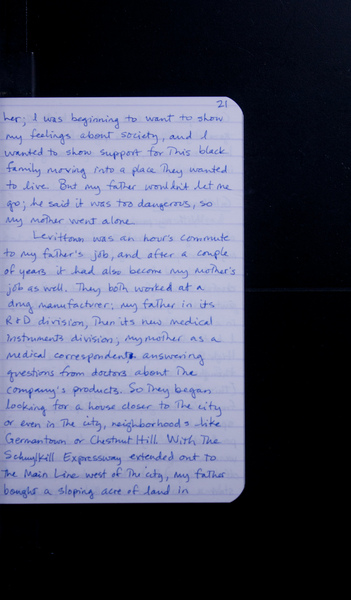 21
her; I was beginning to want to show
my feelings about society, and I
wanted to show support for this black
family moving into a place they wanted
to live. But my father wouldn't let me
go; he said it was too dangerous, so
my mother went alone.
Levittown was an hour's commute
to my father's job, and after a couple
of years it had also become my mother's
job as well. They both worked at a
drug manufacturer; my father in its
R+D division, then its new medical
instruments division; my mother as a
medical correspondent answering
questions from doctors about the
company's products. So they began
looking for a house closer to the city
or even in the city, neighborhoods like
Germantown or Chestnut Hill. With the
Schuylkill Expressway extended out to
the Main Line west of the city, my father
bought a sloping acre of land in